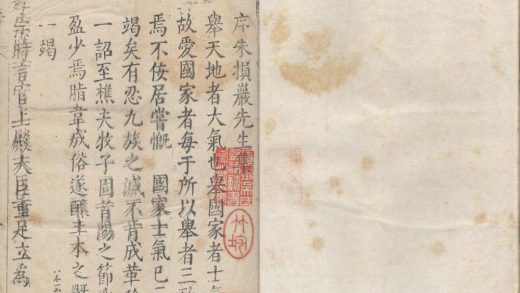 序朱損巖先生
舉天地者大氣也舉國家者士
故愛國家者每于所以舉者三致
焉不佞居嘗慨 國家士氣已
竭矣有忍九族之滅不肯成革
一詔至樵夫牧子圄首陽之節
盈少焉脂韋成俗遂釀土木之
一竭
時言官上殿大臣重足立焉
竹垞